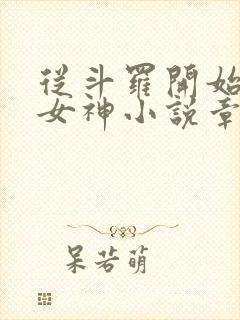 從斗羅開始
女神小說章
呆若萌